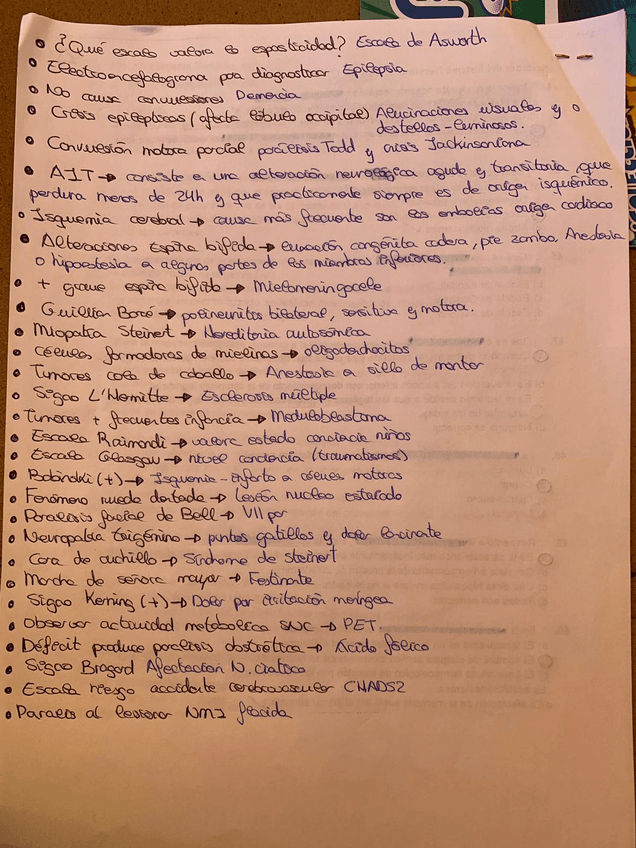 • ¿Qué escala valora la espasticidad? Escala de Asworth
• Electroencefalograma para diagnosticar Epilepsia
• No causa convulsiones Demencia
• Crisis epilépticas (afecta lóbulo occipital) Alucinaciones visuales y o
destellos-luminosos.
• Convulsión motora parcial parálisis Todd y crisis Jacksoniana
• AIT → consiste en una alteración neurológica aguda y transitoria, que
perdura menos de 24h y que practicamente siempre es de origen isquémico.
• Isquemia cerebral → causa más frecuente son las embolias origen cardiaco
• Alteraciones Espina bífida → luxación congénita cadera, pie zambo, Anestesia
o hipoestesia en algunas partes de los miembros inferiores.
• + grave espina bifida → Mielomeningocele
• Guillian Barré → polineuritis bilateral, sensitiva y motora.
• Miopatía Steinert → Hereditaria autosómica
• Células formadoras de mielinas → oligodendrocitos
• Tumores cola de caballo → Anestesia en silla de montar
• Signo L'Hermitte → Esclerosis múltiple
• Tumores + frecuentes infancia → Meduloblastoma
• Escala Raimondi → valora estado conciencia niños
• Escala Glasgow → nivel conciencia (traumatismos)
• Babinski (+) → Isquemia - infarto a células motoras
• Fenómeno rueda dentada → Lesión nucleo estriado
• Paralisis facial de Bell → VII par
• Neuropatía trigémino → puntos gatillos y dolor lacinante
• Cara de cuchillo → Síndrome de Steinert
• Marcha de señora mayor → Festinante
• Signo Kerning (+) → Dolor por irritación meníngea
• Observar actividad metabolica SNC → PET.
• Déficit produce paralisis obstrética → Ácido fólico
• Signo Bragard Afectación N. ciatico
• Escala riesgo accidente cerebrovascular CHADS2
• Paralis al lesionar NMI flacida